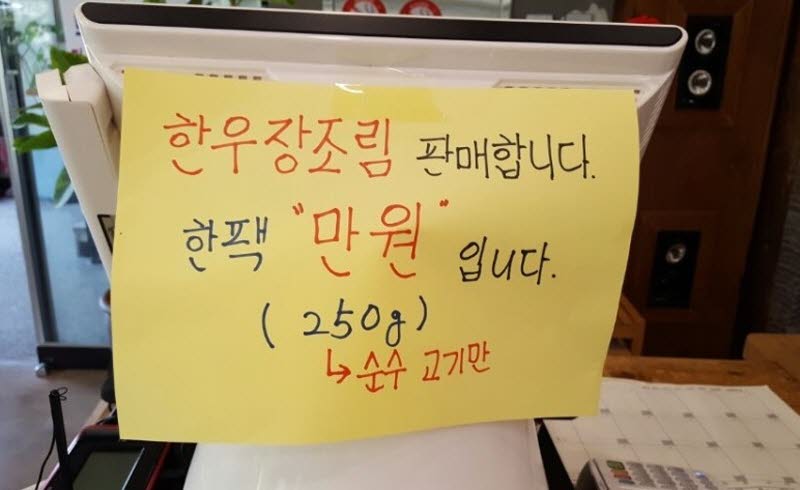 한우장조림 판매합니다.
한팩 "만원" 입니다.
( 250g )
↳ 순수 고기만